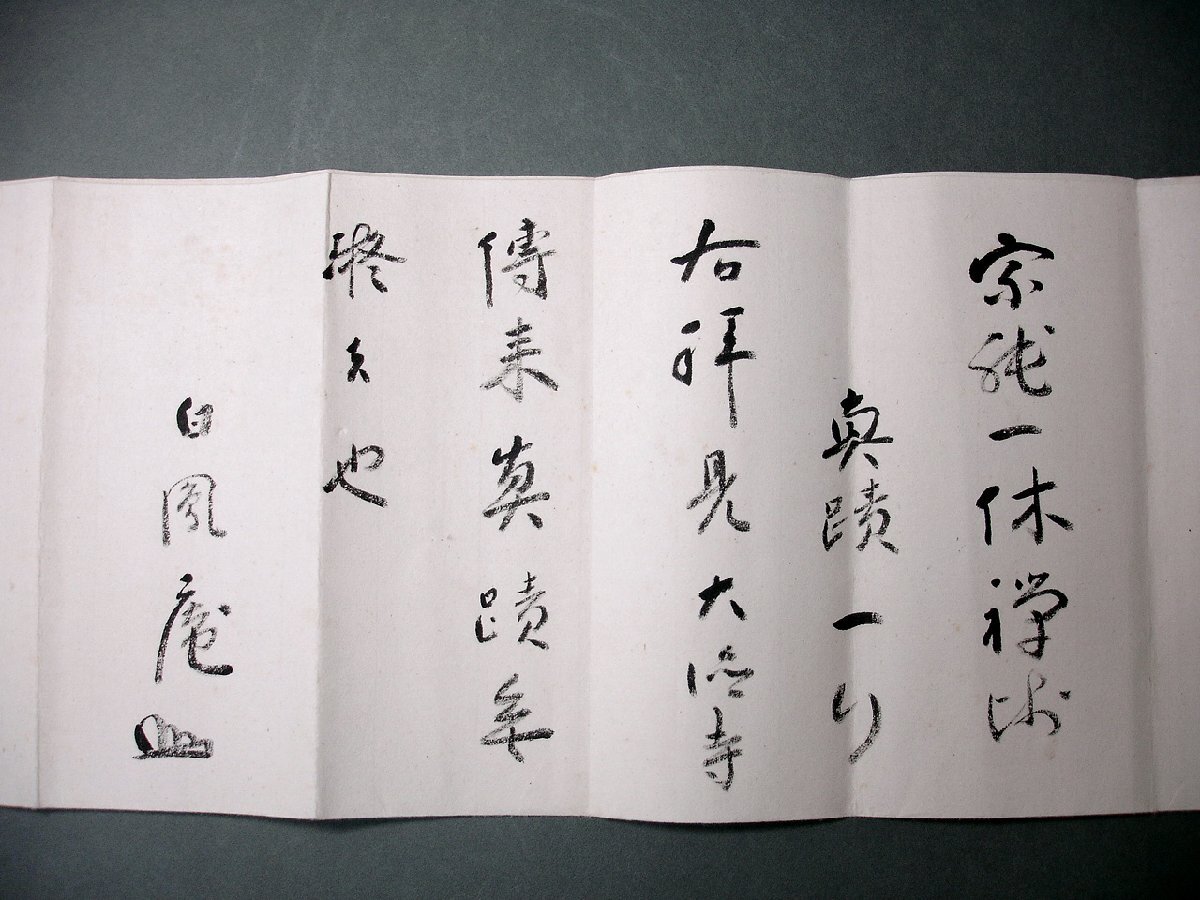 宗純一休禅師
真蹟一行
右拝見大徳寺
傳来真蹟無
疑者也
白鳳庵